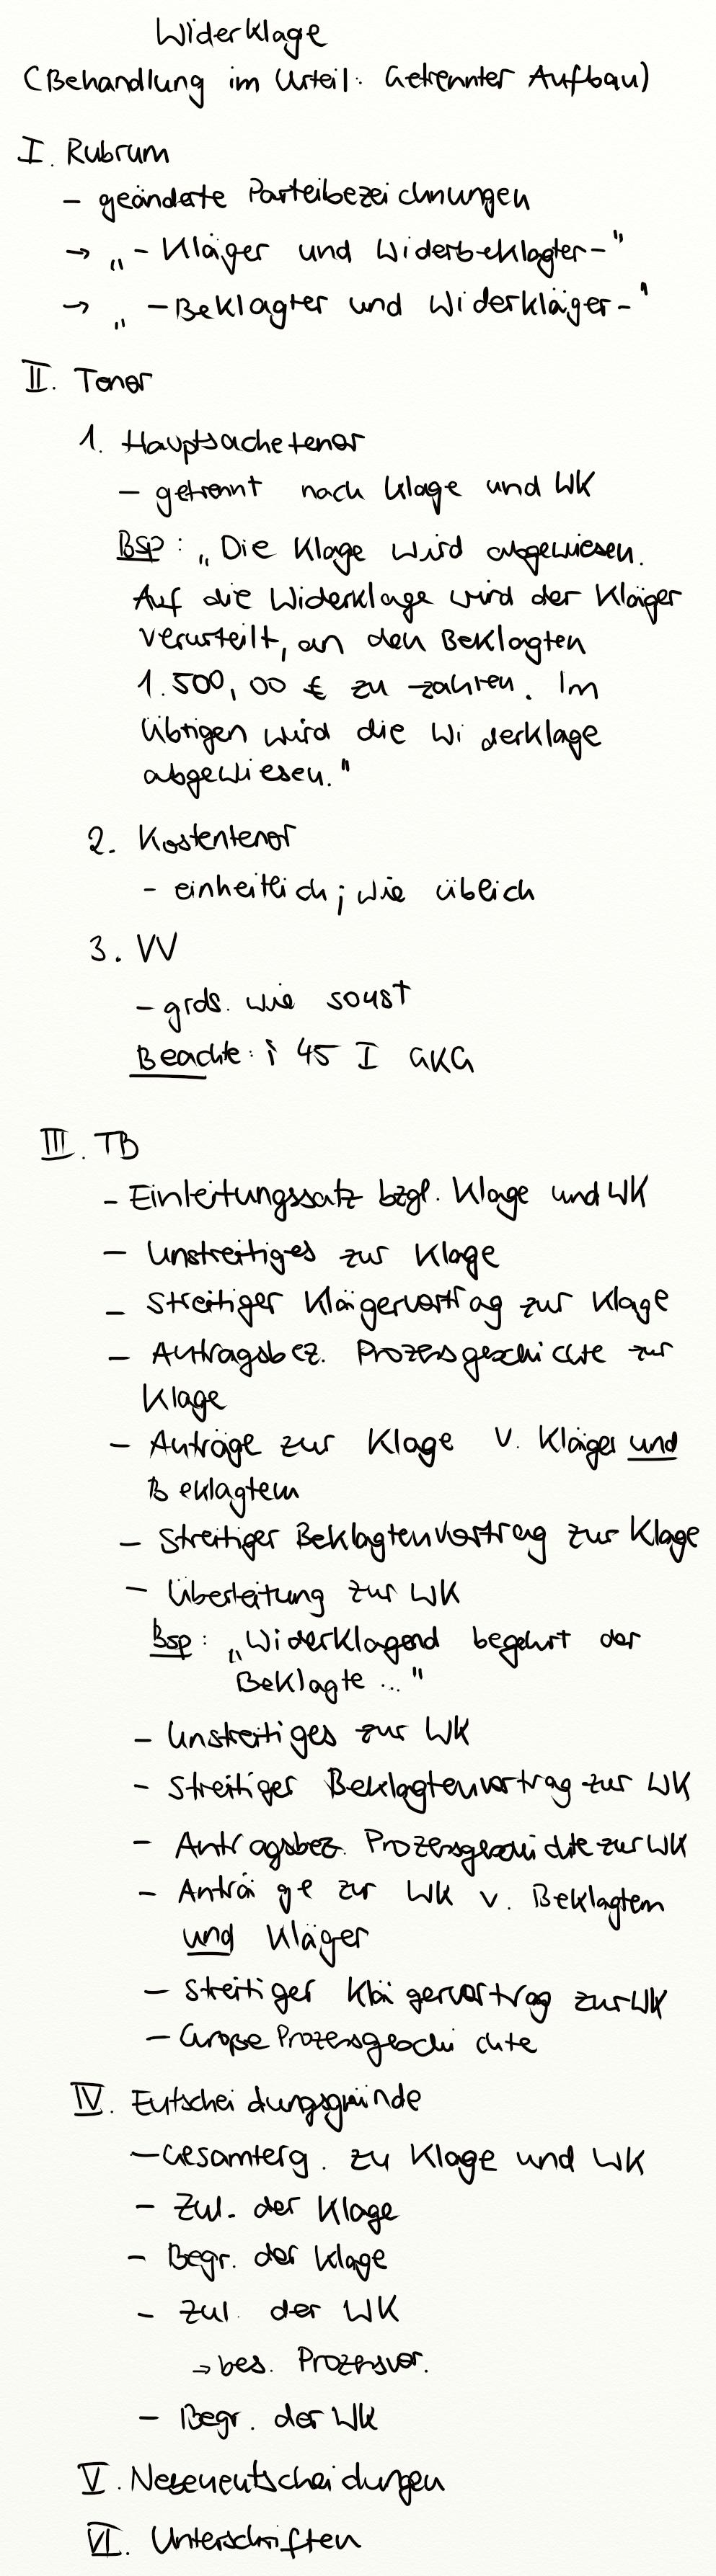 Widerklage
(Behandlung im Urteil: Getrennter Aufbau)
I. Rubrum
- geänderte Parteibezeichnungen
→ „- Kläger und Widerbeklagter-"
→ „ -Beklagter und Widerkläger-"
II. Tenor
1. Hauptsachetenor
- getrennt nach Klage und WK
Bsp: „Die Klage wird abgewiesen.
Auf die Widerklage wird der Kläger
verurteilt, an den Beklagten
1.500,00 € zu zahlen. Im
Übrigen wird die Widerklage
abgewiesen."
2. Kostentenor
- einheitlich; wie üblich
3. VV
- grds. wie sonst
Beachte: § 45 I GKG
III. TB
- Einleitungssatz bzgl. Klage und WK
- Unstreitiges zur Klage
- Streitiger Klägervortrag zur Klage
- Antragsbez. Prozessgeschichte zur
Klage
- Anträge zur Klage v. Kläger und
Beklagtem
- Streitiger Beklagtenvortrag zur Klage
- Überleitung zur WK
Bsp: „Widerklagend begehrt der
Beklagte ..."
- Unstreitiges zur WK
- Streitiger Beklagtenvortrag zur WK
- Antragsbez. Prozessgeschichte zur WK
- Anträge zur WK v. Beklagtem
und Kläger
- Streitiger Klägervortrag zur WK
- Große Prozessgeschichte
IV. Entscheidungsgründe
- Gesamterg. zu Klage und WK
- Zul. der Klage
- Begr. der Klage
- Zul. der WK
→ bes. Prozessvor.
- Begr. der WK
V. Nebenentscheidungen
VI. Unterschriften